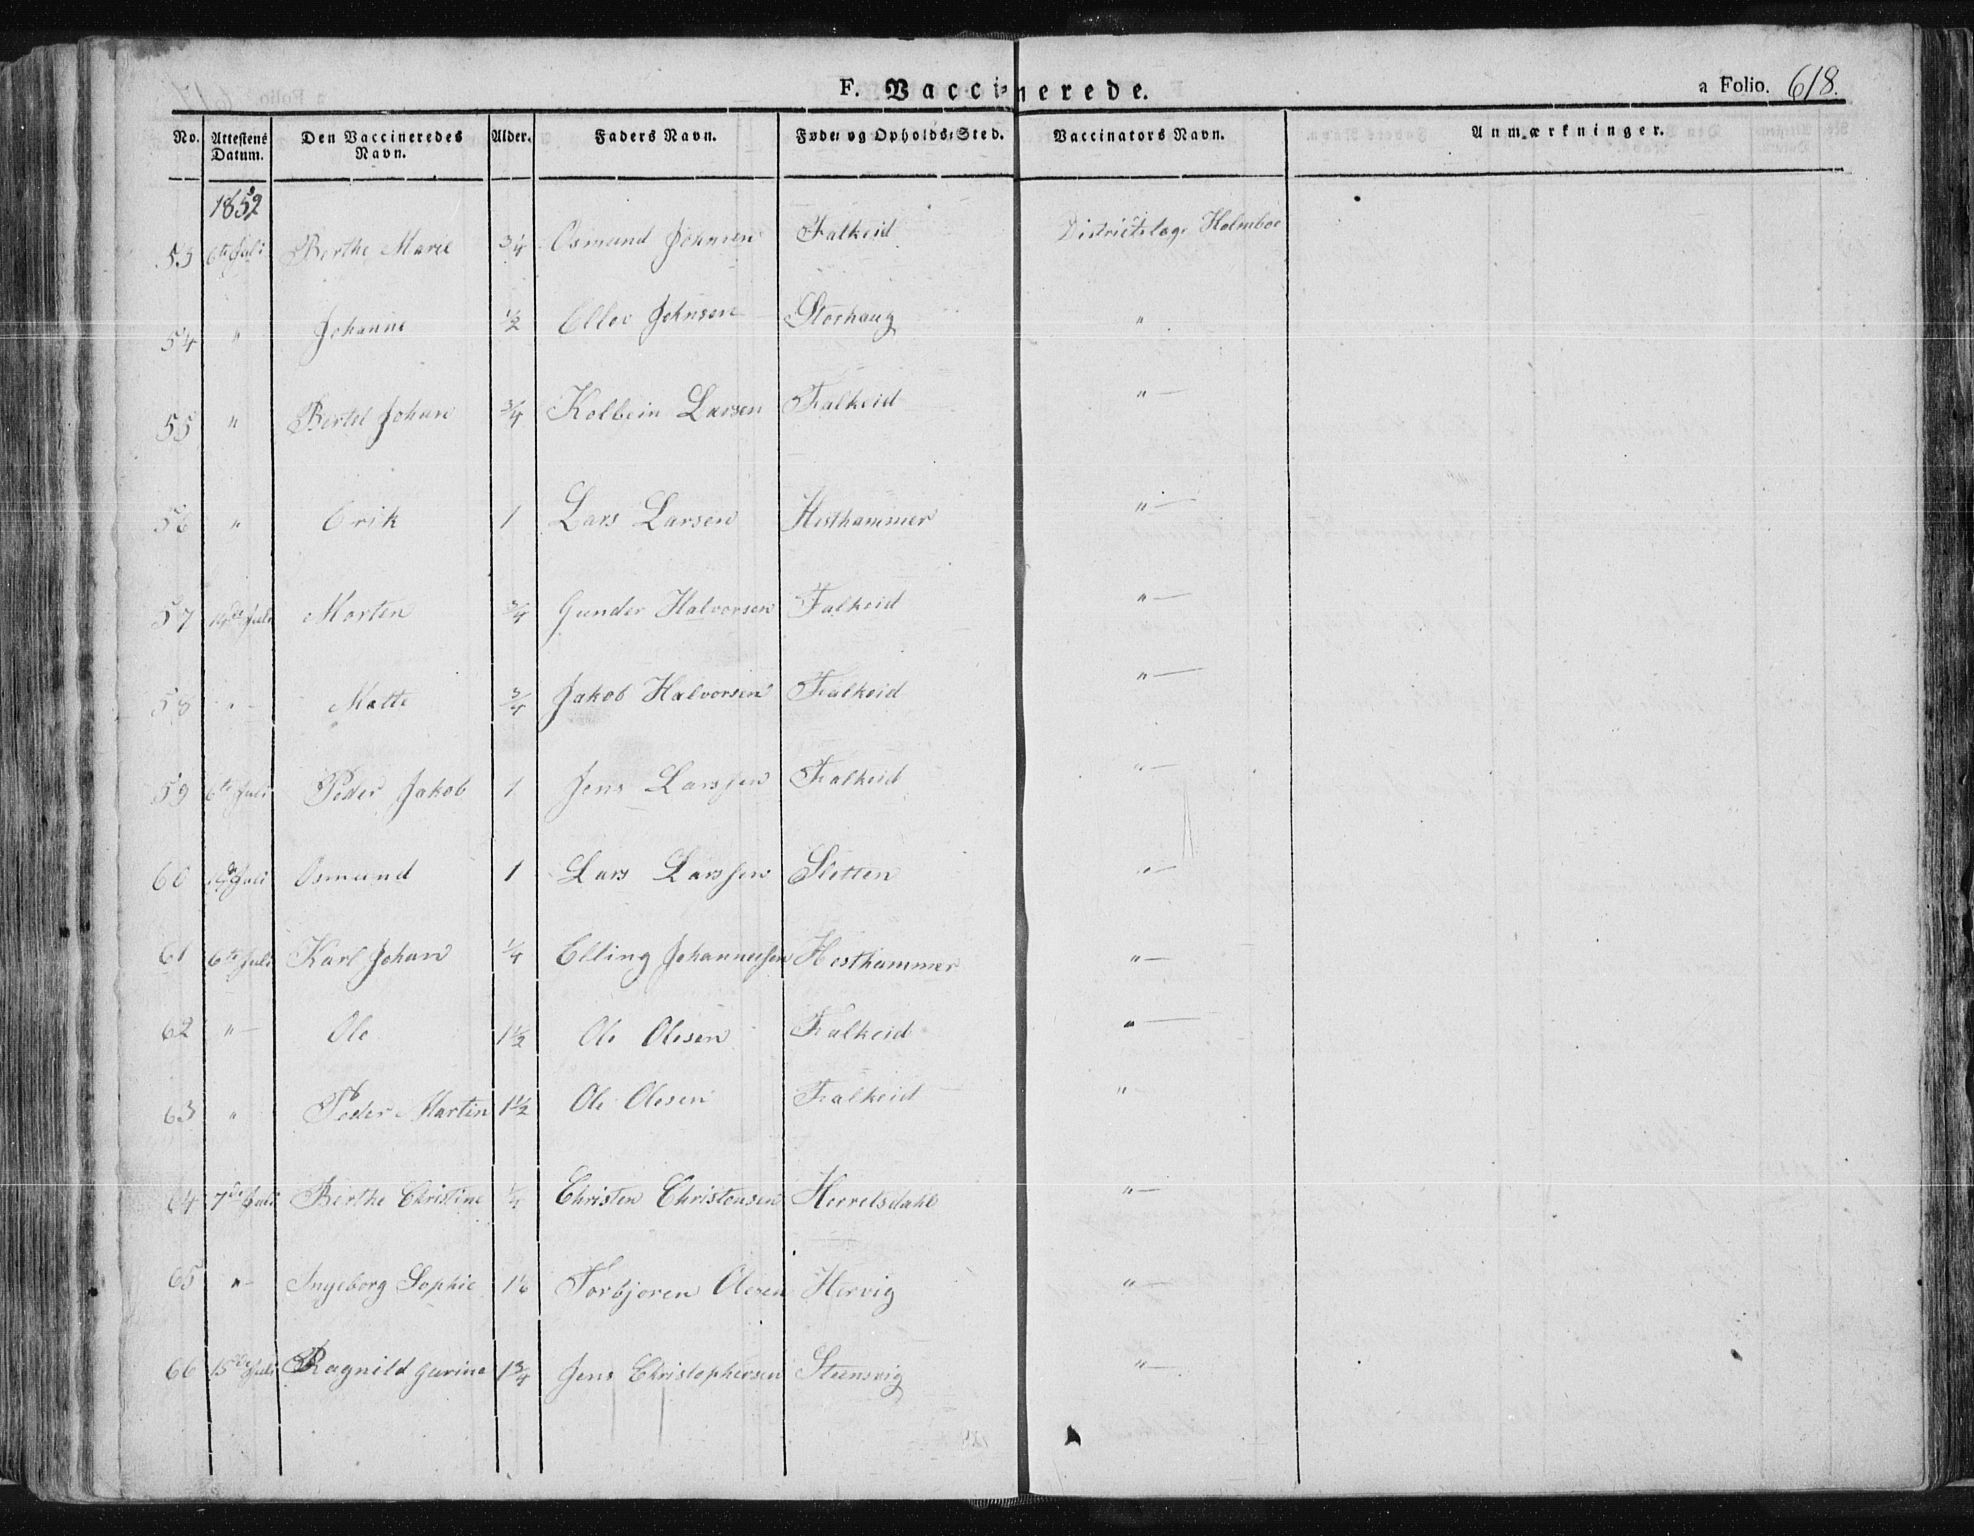 F. Vaccinerede. a Folio. 618.
No. Attestens Datum. Den Vaccineredes Navn. Alder. Faders Navn. Føde- og Opholds-Sted. Vaccinators Navn. Anmærkninger.
1852
53 6te Juli Berthe Marie 3/4 Osmund Johnsen Falkeid Districtslæge Holmboe
54 " Johanne 1/2 Ellev Johnsen Storhaug "
55 " Bertel Johan 3/4 Kolbein Larsen Falkeid " —
56 " Erik 1 Lars Larsen Hesthammer " —
57 14de Juli Morten 3/4 Gunder Halvorsen Falkeid " —
58 " — Mette 3/4 Jakob Halvorsen Falkeid " —
59 6te Juli Peder Jakob 1 Jens Larssen Falkeid " —
60 Juli Osmund 1 Lars Larssen Sletten " —
61 6te Juli Karl Johan 1/4 Elling Johannessen Hesthammer " —
62 " — Ole 1 1/2 Ole Olesen Falkeid " —
63 " Peder Martin 1 1/2 Ole Olesen Falkeid "
64 7de Juli Berthe Christine Christen Christensen Hervelsdahl " —
65 " — Ingeborg Sophie 1 1/6 Torbjøren Olesen Hervig " —
66 15de Juli Ragnild Gurine 1 3/4 Jens Christophersen Steensvig " —